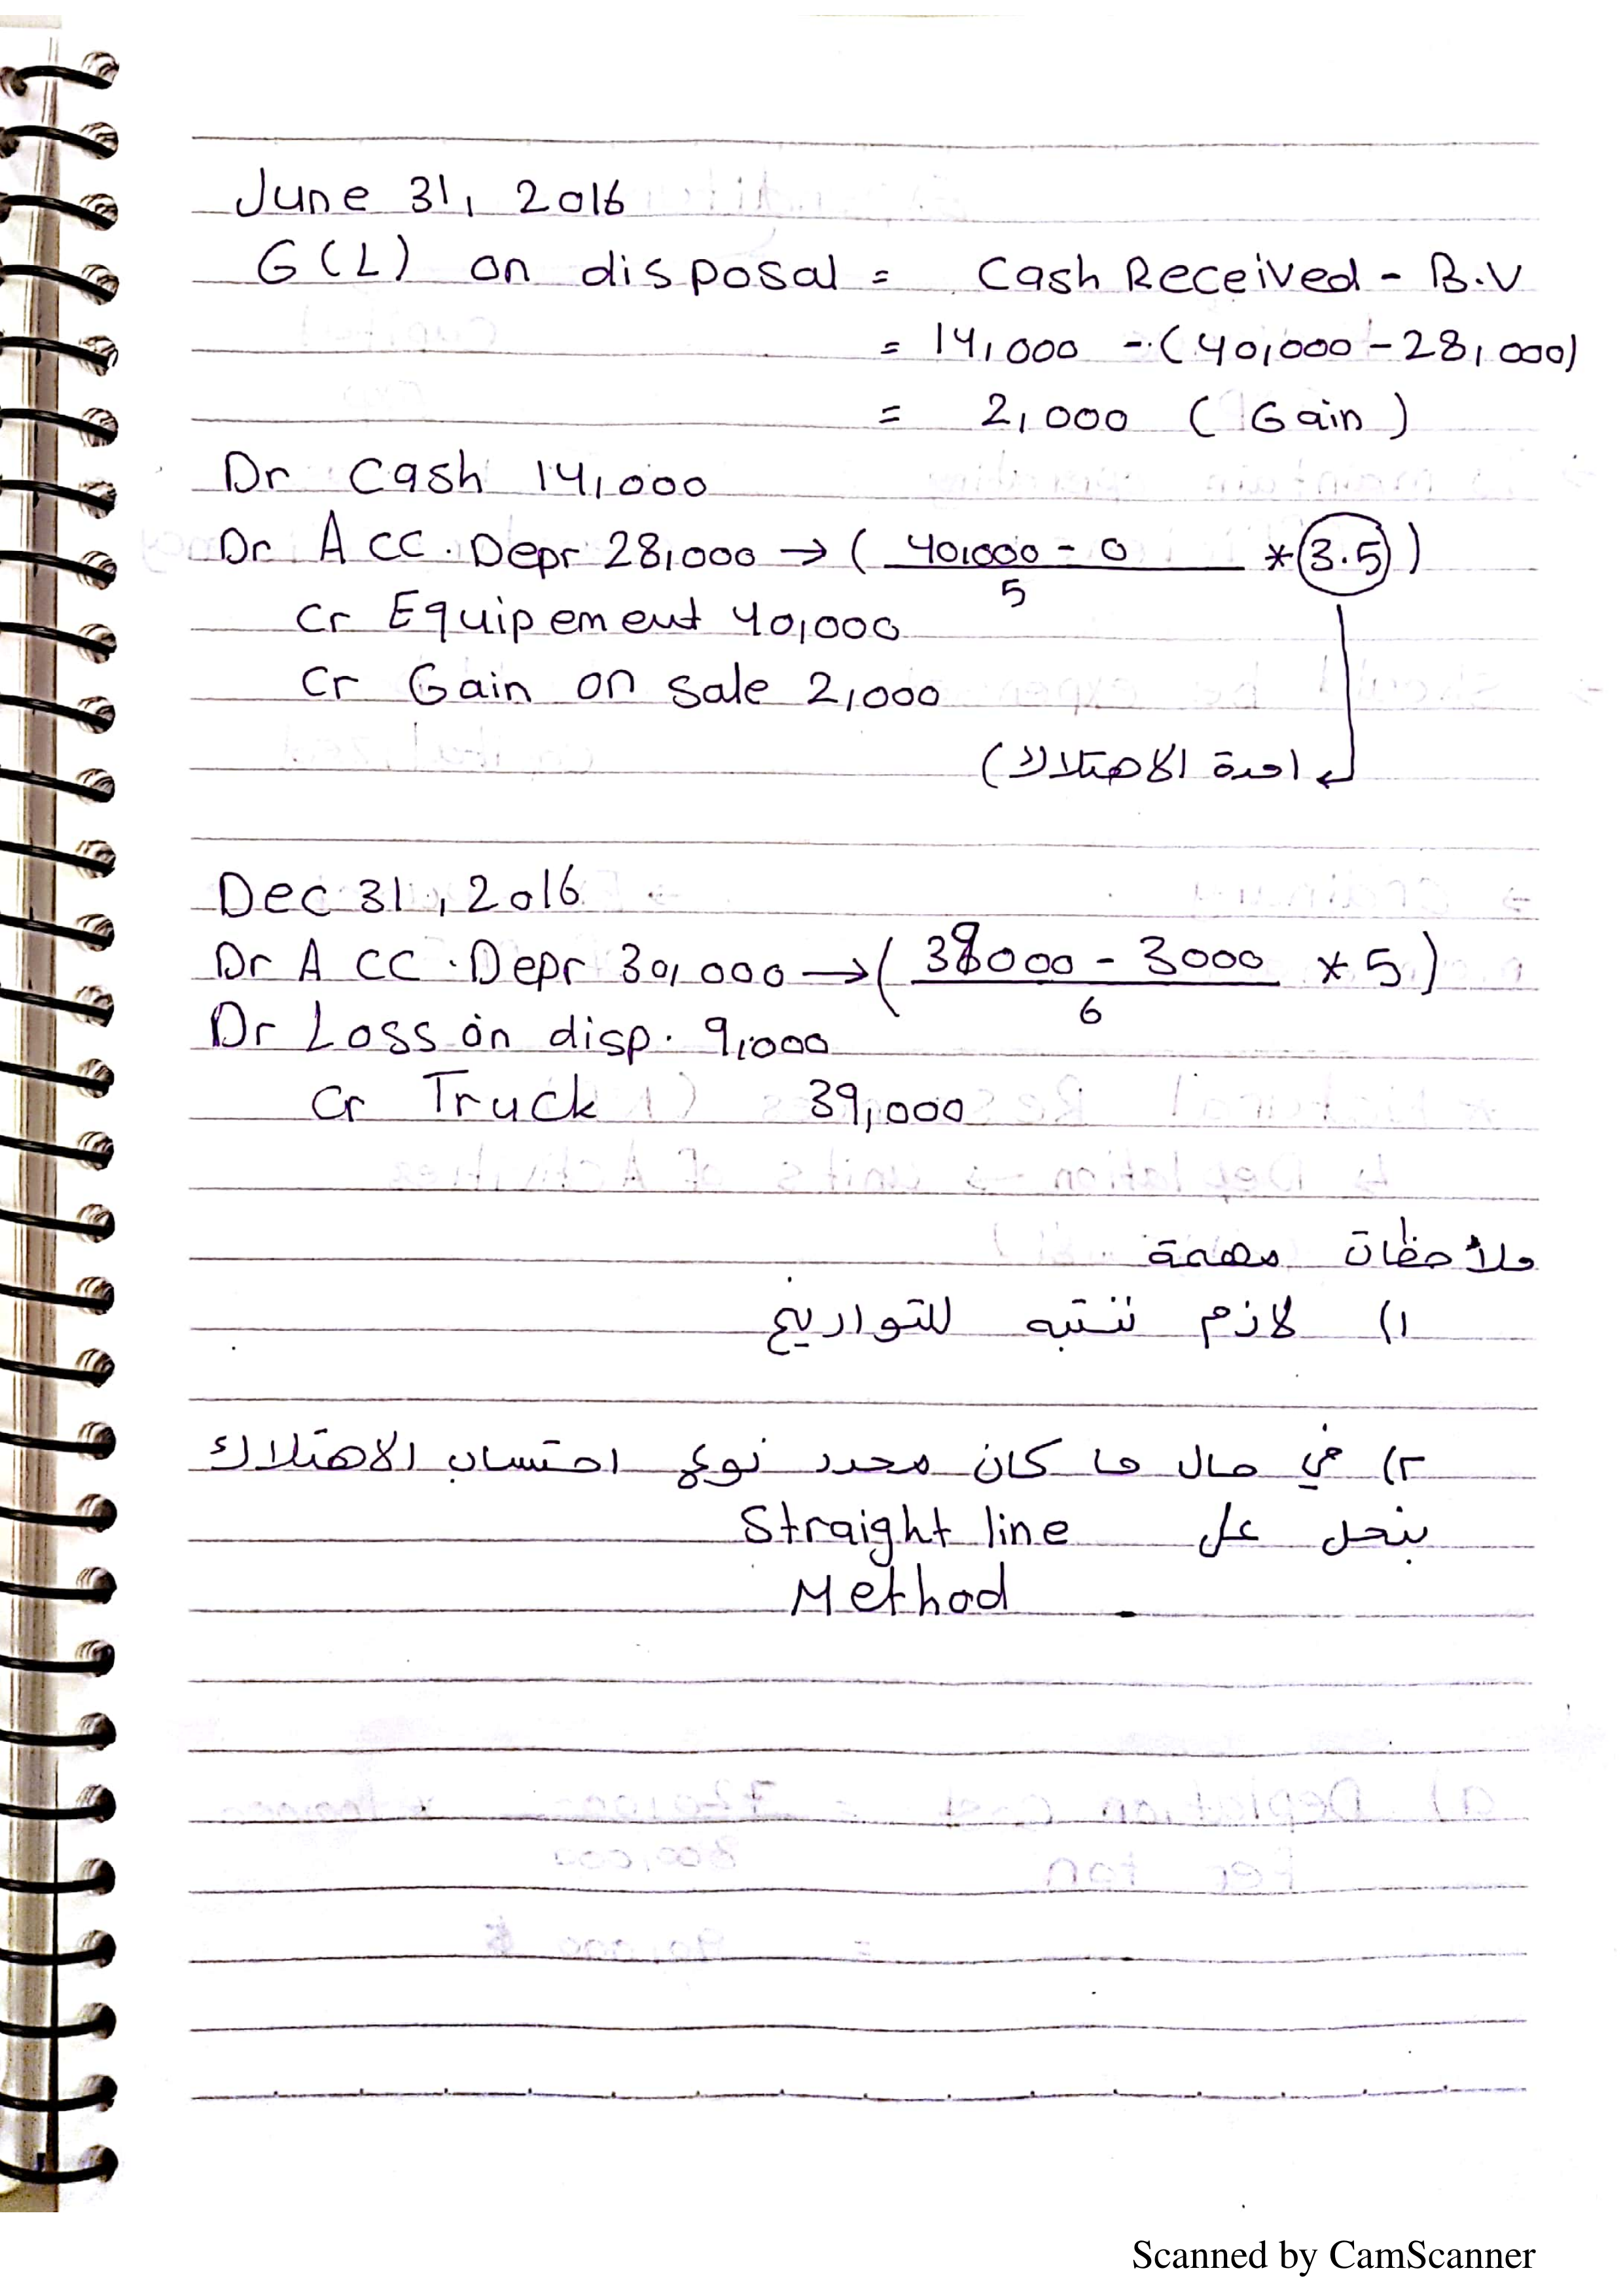 June 31, 2016
G(L) on disposal = Cash Received - B.V
= 14,000 - (40,000 - 28,000)
= 2,000 (Gain)
Dr Cash 14,000
Dr Acc. Depr 28,000 → ( 40,000 - 0 / 5 * 3.5 )
Cr Equipement 40,000
Cr Gain on sale 2,000
الاهتلاك)
Dec 31, 2016
Dr Acc. Depr 30,000 → ( 39000 - 3000 / 6 * 5 )
Dr Loss on disp. 9,000
Cr Truck 39,000
ملاحظات مهمة
١) لازم ننتبه للتواريخ
٢) في حال ما كان محدد نوع احتساب الاهتلاك
بنحل على Straight line
Method
Scanned by CamScanner